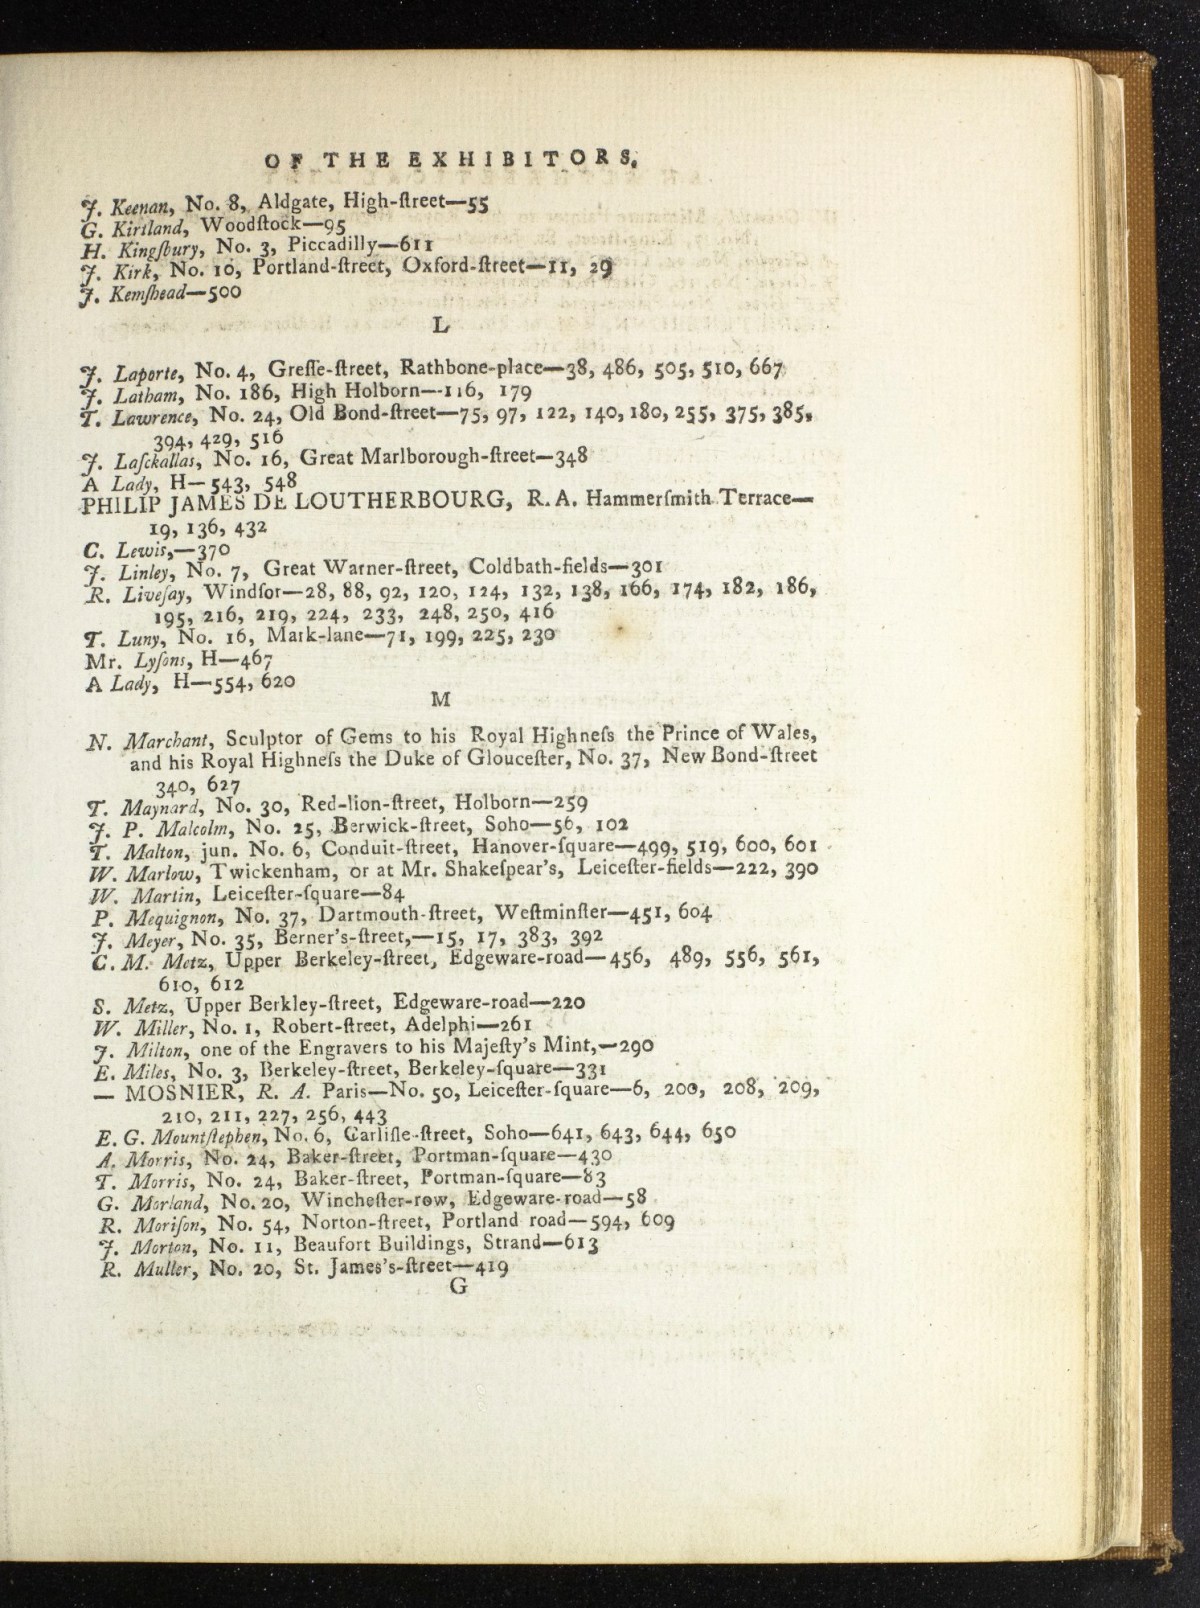 OF THE EXHIBITORS.
J. Keenan, No. 8, Aldgate, High-ſtreet—55
G. Kirtland, Woodſtock—95
H. Kingſbury, No. 3, Piccadilly—611
J. Kirk, No. 10, Portland-ſtreet, Oxford-ſtreet—11, 29
J. Kemſhead—500
L
J. Laporte, No. 4, Greſſe-ſtreet, Rathbone-place—38, 486, 505, 510, 667
J. Latham, No. 186, High Holborn—116, 179
T. Lawrence, No. 24, Old Bond-ſtreet—75, 97, 122, 140, 180, 255, 375, 385,
394, 429, 516
J. Laſckallas, No. 16, Great Marlborough-ſtreet—348
A Lady, H—543, 548
PHILIP JAMES DE LOUTHERBOURG, R. A. Hammerſmith Terrace—
19, 136, 432
C. Lewis,—370
J. Linley, No. 7, Great Warner-ſtreet, Coldbath-fields—301
R. Liveſay, Windſor—28, 88, 92, 120, 124, 132, 138, 166, 174, 182, 186,
195, 216, 219, 224, 233, 248, 250, 416
T. Luny, No. 16, Mark-lane—71, 199, 225, 230
Mr. Lyſons, H—467
A Lady, H—554, 620
M
N. Marchant, Sculptor of Gems to his Royal Highneſs the Prince of Wales,
and his Royal Highneſs the Duke of Glouceſter, No. 37, New Bond-ſtreet
340, 627
T. Maynard, No. 30, Red-lion-ſtreet, Holborn—259
J. P. Malcolm, No. 25, Berwick-ſtreet, Soho—56, 102
T. Malton, jun. No. 6, Conduit-ſtreet, Hanover-ſquare—499, 519, 600, 601
W. Marlow, Twickenham, or at Mr. Shakeſpear's, Leiceſter-fields—222, 390
W. Martin, Leiceſter-ſquare—84
P. Mequignon, No. 37, Dartmouth-ſtreet, Weſtminſter—451, 604
J. Meyer, No. 35, Berner's-ſtreet,—15, 17, 383, 392
C. M. Metz, Upper Berkeley-ſtreet, Edgeware-road—456, 489, 556, 561,
610, 612
S. Metz, Upper Berkley-ſtreet, Edgeware-road—220
W. Miller, No. 1, Robert-ſtreet, Adelphi—261
J. Milton, one of the Engravers to his Majeſty's Mint,—290
E. Miles, No. 3, Berkeley-ſtreet, Berkeley-ſquare—331
— MOSNIER, R. A. Paris—No. 50, Leiceſter-ſquare—6, 200, 208, 209,
210, 211, 227, 256, 443
E. G. Mountſtephen, No. 6, Carliſle-ſtreet, Soho—641, 643, 644, 650
A. Morris, No. 24, Baker-ſtreet, Portman-ſquare—430
T. Morris, No. 24, Baker-ſtreet, Portman-ſquare—83
G. Morland, No. 20, Wincheſter-row, Edgeware-road—58
R. Moriſon, No. 54, Norton-ſtreet, Portland road—594, 609
J. Morton, No. 11, Beaufort Buildings, Strand—613
R. Muller, No. 20, St. James's-ſtreet—419
G